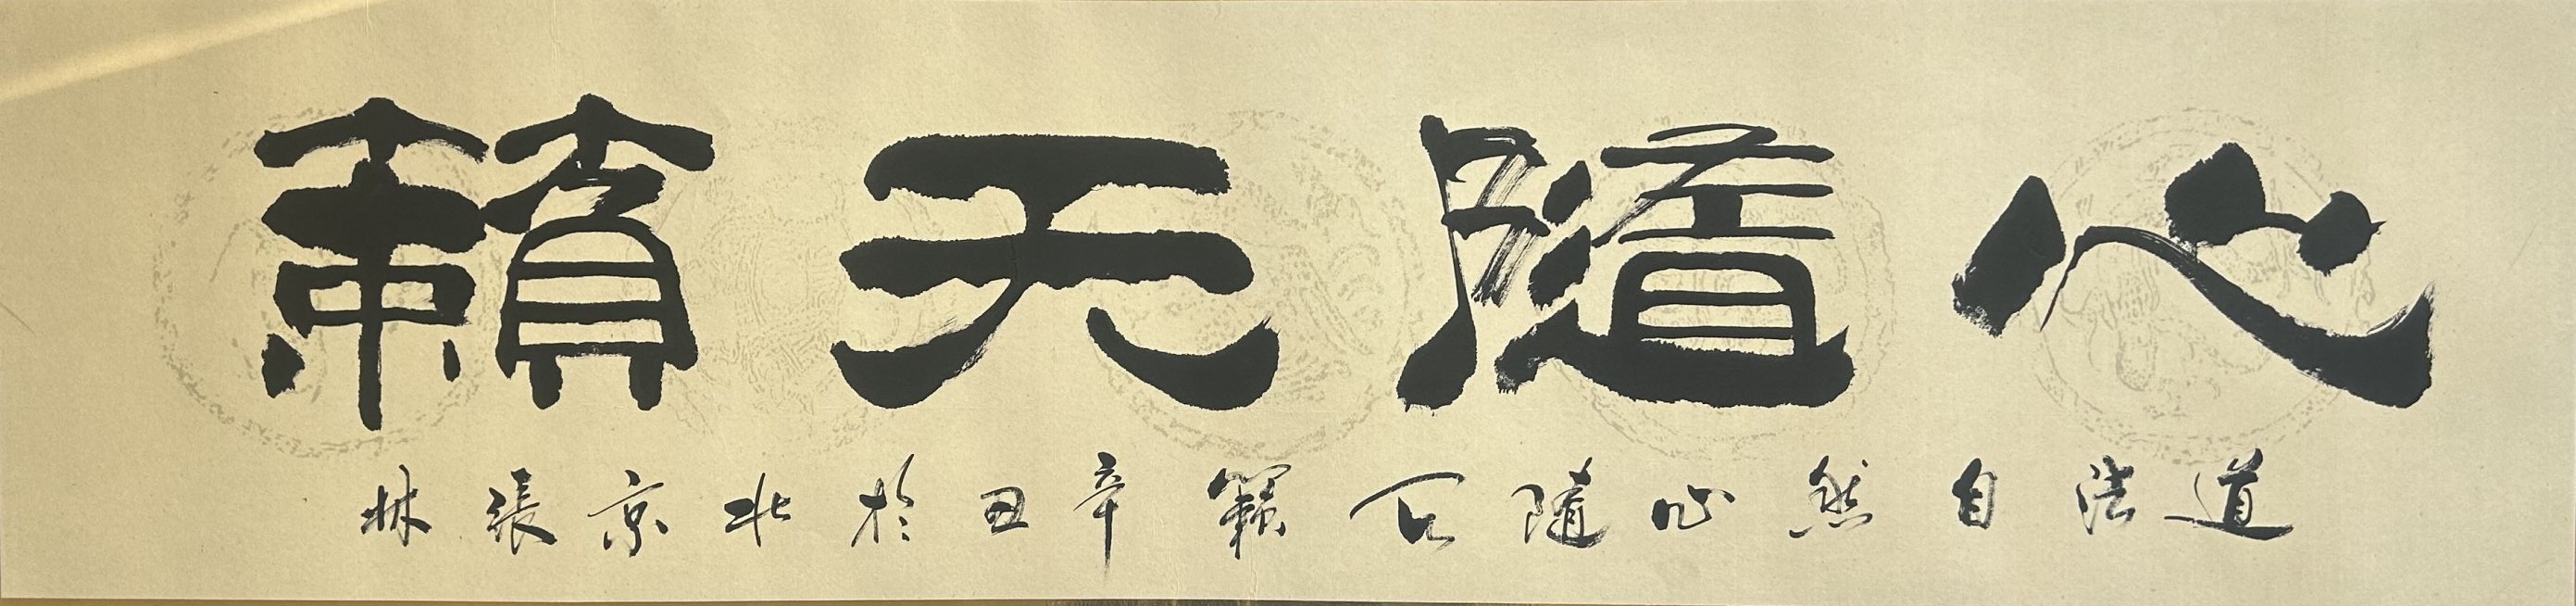 心隨天籟
道法自然心隨籟辛丑於北京張林